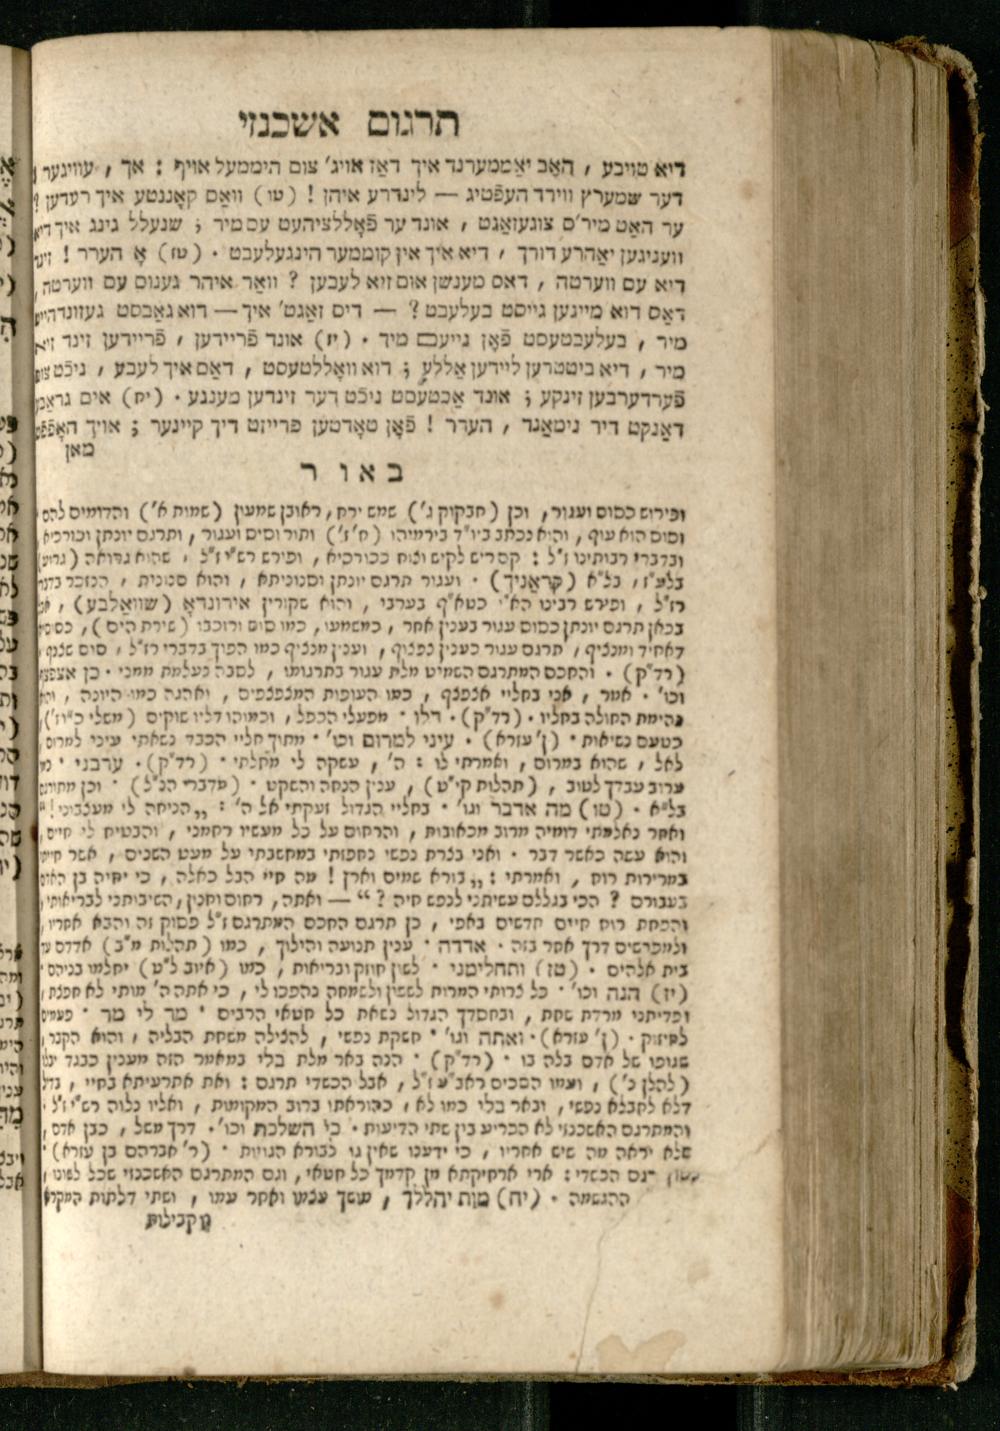 תרגום אשכנזי
דיא טויבע , האָב יאַממערנד איך דאַז אויג' צום היממעל אויף : אך , עוויגער
דער שמערץ ווירד העפֿטיג — לינדרע איהן ! (טו) וואָס קאָננטע איך רעדען ?
ער האָט מיר'ס צוגעזאָגט , אונד ער פֿאָללציהעט עס מיר ; שנעלל גינג איך דיא
וועניגען יאָהרע דורך , דיא איך אין קוממער הינגעלעבט . (טז) אָ העrר ! זינד
דיא עס ווערטה , דאס מענשן אום זיא לעבען ? וואַר איהר גענוס עס ווערטה ,
דאַס דוא מיינען גייסט בעלעבט ? — דיס זאָגט' איך — דוא גאַבסט געזונדהייט
מיר , בעלעבטעסט פֿאָן נייעם מיך . (יז) אונד פֿריידען , פֿריידען זינד זיא
מיר , דיא ביטטרען ליידען אַללע ; דוא וואָללטעסט , דאַס איך לעבע , ניכֿט צום
פֿערדערבען זינקע ; אונד אַכטעסט ניכֿט דער זינדען מענגע . (יח) אים גראַבע
דאַנקט דיר ניטאַנד , הערר ! פֿאָן טאָדטען פרייזט דיך קיינער ; אויך האָפֿפֿט
מאן
באור
ופירוש כסוס ועגור , וכן (חבקוק ג') שמש ירח , ראובן שמעון (שמות א') והדומים להם
וסוס הוא עוף , והוא נכתב ביו"ד בירמיהו (ח' ז') ותור וסיס ועגור , ותרגם יונתן וכורכיא
ובדברי רבותינו ז"ל : קסריש לקיש ונוח ככורכיא , ופירש רש"י ז"ל , שהוא גרואה (גרוע)
בלע"ז , בל"א (קראַניך) . ועגור תרגם יונתן וסנוניתא , והוא סנונית , הנזכר בדברי
רז"ל , ופירש רבינו הא"י כטא"ף בערבי , והוא שקורין אירונדאָ (שוואַלבע) ,
בכאן תרגם יונתן כסוס עגור בענין אחר , כמשמעו , כמו סוס ורוכבו (שירת הים) , כסוסיא
דאחיד ומנציף , תרגם עגור כענין נצנוף , וענין מנציף כמו הפוך בדברי רז"ל , סוס שצנף
(רד"ק) . והחכם המתרגם השמיט מלת עגור בתרגומו , לסבה נעלמת ממני . כן אצפצף
וכו' . אמר , אני בחליי אצפצף , כמו העופות המצפצפים , ואהגה כמו היונה ,
נהימת החולה בחליו . (רד"ק) . דלו . מפעלי הכפל , וכמוהו דליו שוקים (משלי כ"ו ז')
כטעם נשיאות . (ן' עזרא) . עיני למרום וכו' . מתוך חליי הכבד נשאתי עיני למרום
לאל , שהוא במרום , ואמרתי לו : ה' , עשקה לי מחלתי . (רד"ק) . ערבני .
ערוב עבדך לטוב , (תהלות קי"ט) , ענין הנחה והשקט . (מדברי הנ"ל) . וכן מתורגם
בל"א . (טו) מה אדבר וגו' . בחליי הגדול זעקתי אל ה' : „הניחה לי מעצבוני !"
ואחר נאלמתי דומיה מרוב מכאובות , והרחום על כל מעשיו רחמני , והבטיח לי חיים ,
והוא עשה כאשר דבר . ואני בצרת נפשי נחפזתי במחשבתי על מעט השנים , אשר חייתי
במרירות רוח , ואמרתי : „בורא שמים וארץ ! מה חיי הבל כאלה , כי יחיה בן האדם
בעבורם ? הכי בגללם עשיתני לנפש חיה ? " — ואתה , רחום וחנון , השיבותני לבריאותי
והפחת רוח חיים חדשים באפי , כן תרגם החכם המתרגם ז"ל פסוק זה והבא אחריו ,
ולמפרשים דרך אחר בזה . אדדה . ענין תנועה והילוך , כמו (תהלות מ"ב) אדדם עד
בית אלהים . (טז) ותחלימני . לשון חוזק ובריאות , כמו (איוב ל"ט) יחלמו בניהם .
(יז) הנה וכו' . כל צרותי המרות לששון ולשמחה נהפכו לי , כי אתה ה' מותי לא חפצת ,
ופדיתני מרדת שחת , ובחסדך הגדול נשאת כל חטאי הרבים . מר לי מר . פעמים
לחיזוק . (ן' עזרא) . ואתה וגו' . חשקת נפשי , להצילה משחת הבליה , והוא הקבר ,
שגופו של אדם בלה בו . (רד"ק) . הנה באר מלת בלי במאמר הזה מענין כבגד יבלו
(להלן נ') , ועמו הסכים ראב"ע ז"ל , אבל הכשדי תרגם : ואת אתרעיתא בחיי , בדיל
דלא לחבלא נפשי , ובאר בלי כמו לא , כהוראתו ברוב המקומות , ואליו נלוה רש"י ז"ל .
והמתרגם האשכנזי לא הכריע בין שתי הדיעות . כי השלכת וכו' . דרך משל , כבן אדם ,
שלא יראה מה שיש אחריו , כי ידענו שאין גו לבורא הגויות . (ר' אברהם בן עזרא) .
הכשדי : ארי ארחיקתא מן קדמך כל חטאי , וגם המתרגם האשכנזי שכל לפנות
ההגשמה . (יח) מות יהללך , מושך עצמו ואחר עמו , ושתי דלתות המקרא
מקבילות